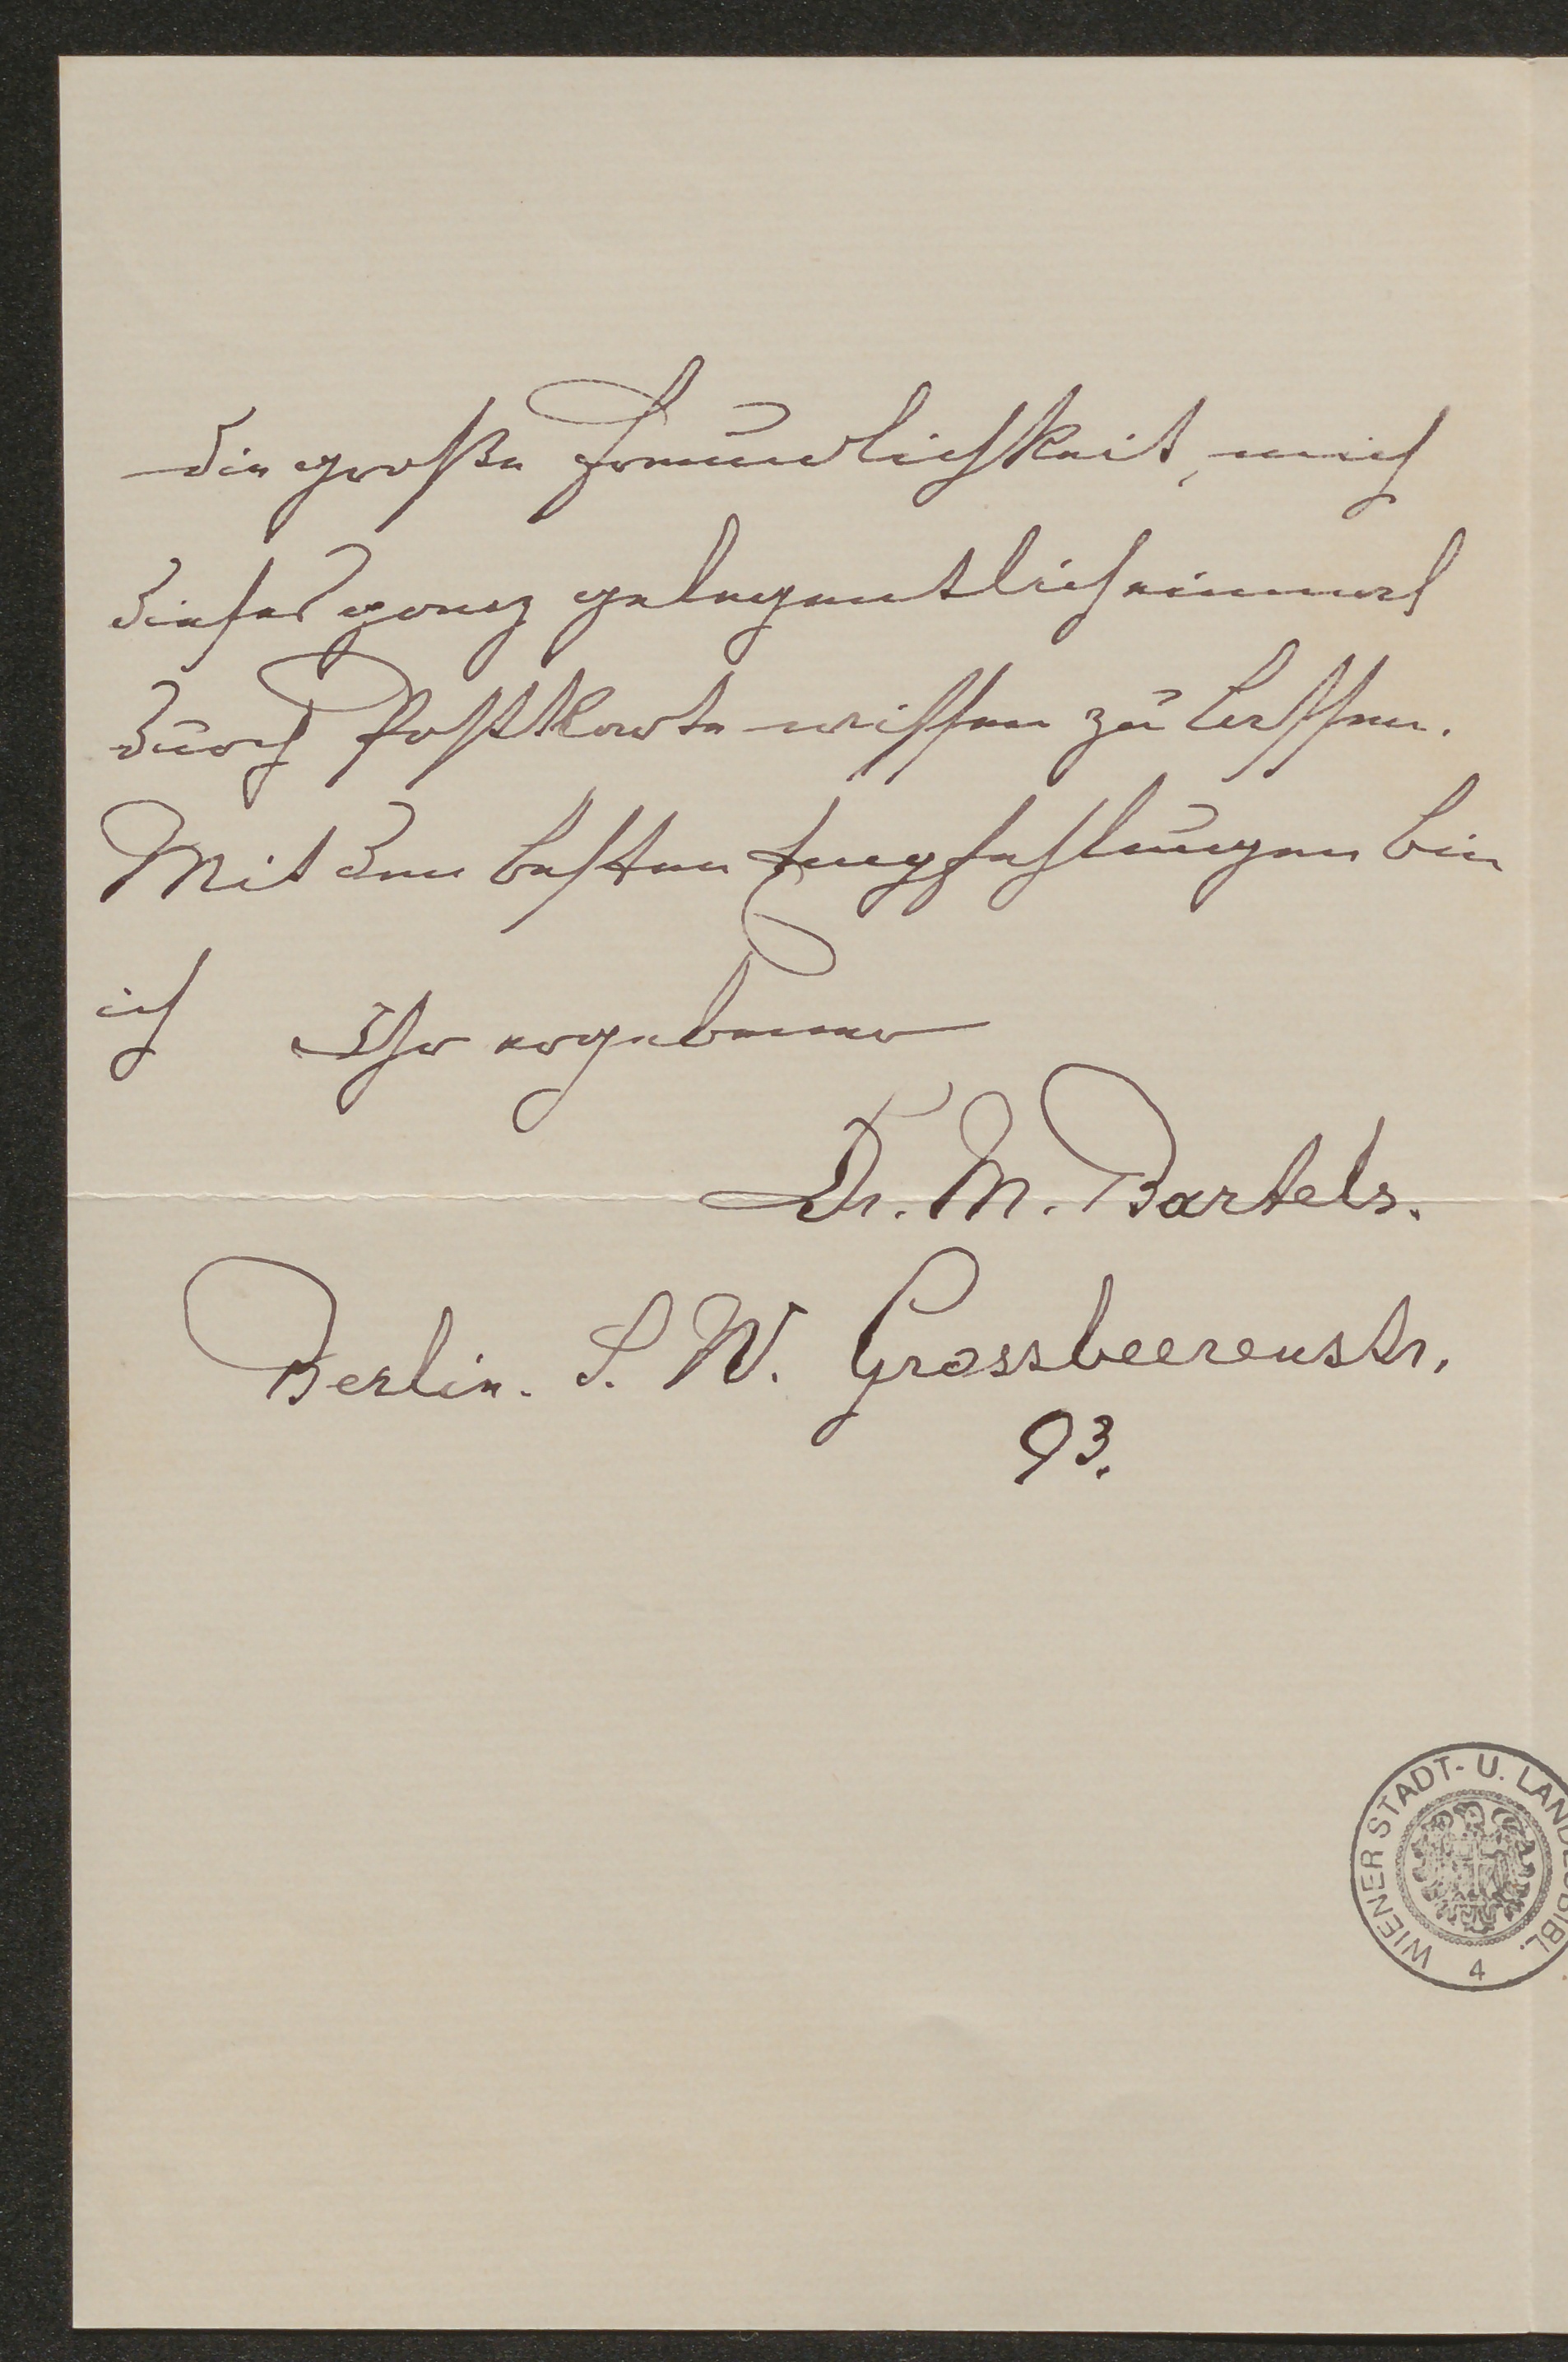 die große Freundlichkeit, mich
dieses ganz gelegentlich einmal
durch Postkarte wissen zu lassen.
Mit den besten Empfehlungen bin
ich Ihr ergebener
Dr. M. Bartels.
Berlin. S. W. Grossbeerenstr.
93.
WIENER STADT- U. LANDESBIBL.
4